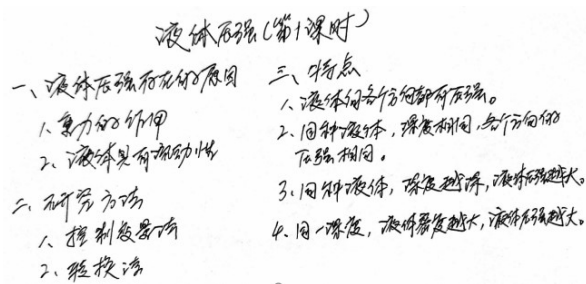 液体压强(第1课时)
一、液体压强存在的原因
1、重力的作用
2、液体具有流动性
二、研究方法
1、控制变量法
2、转换法
三、特点
1、液体向各个方向都有压强。
2、同种液体，深度相同，各个方向的
压强相同。
3、同种液体，深度越深，液体压强越大。
4、同一深度，液体密度越大，液体压强越大。